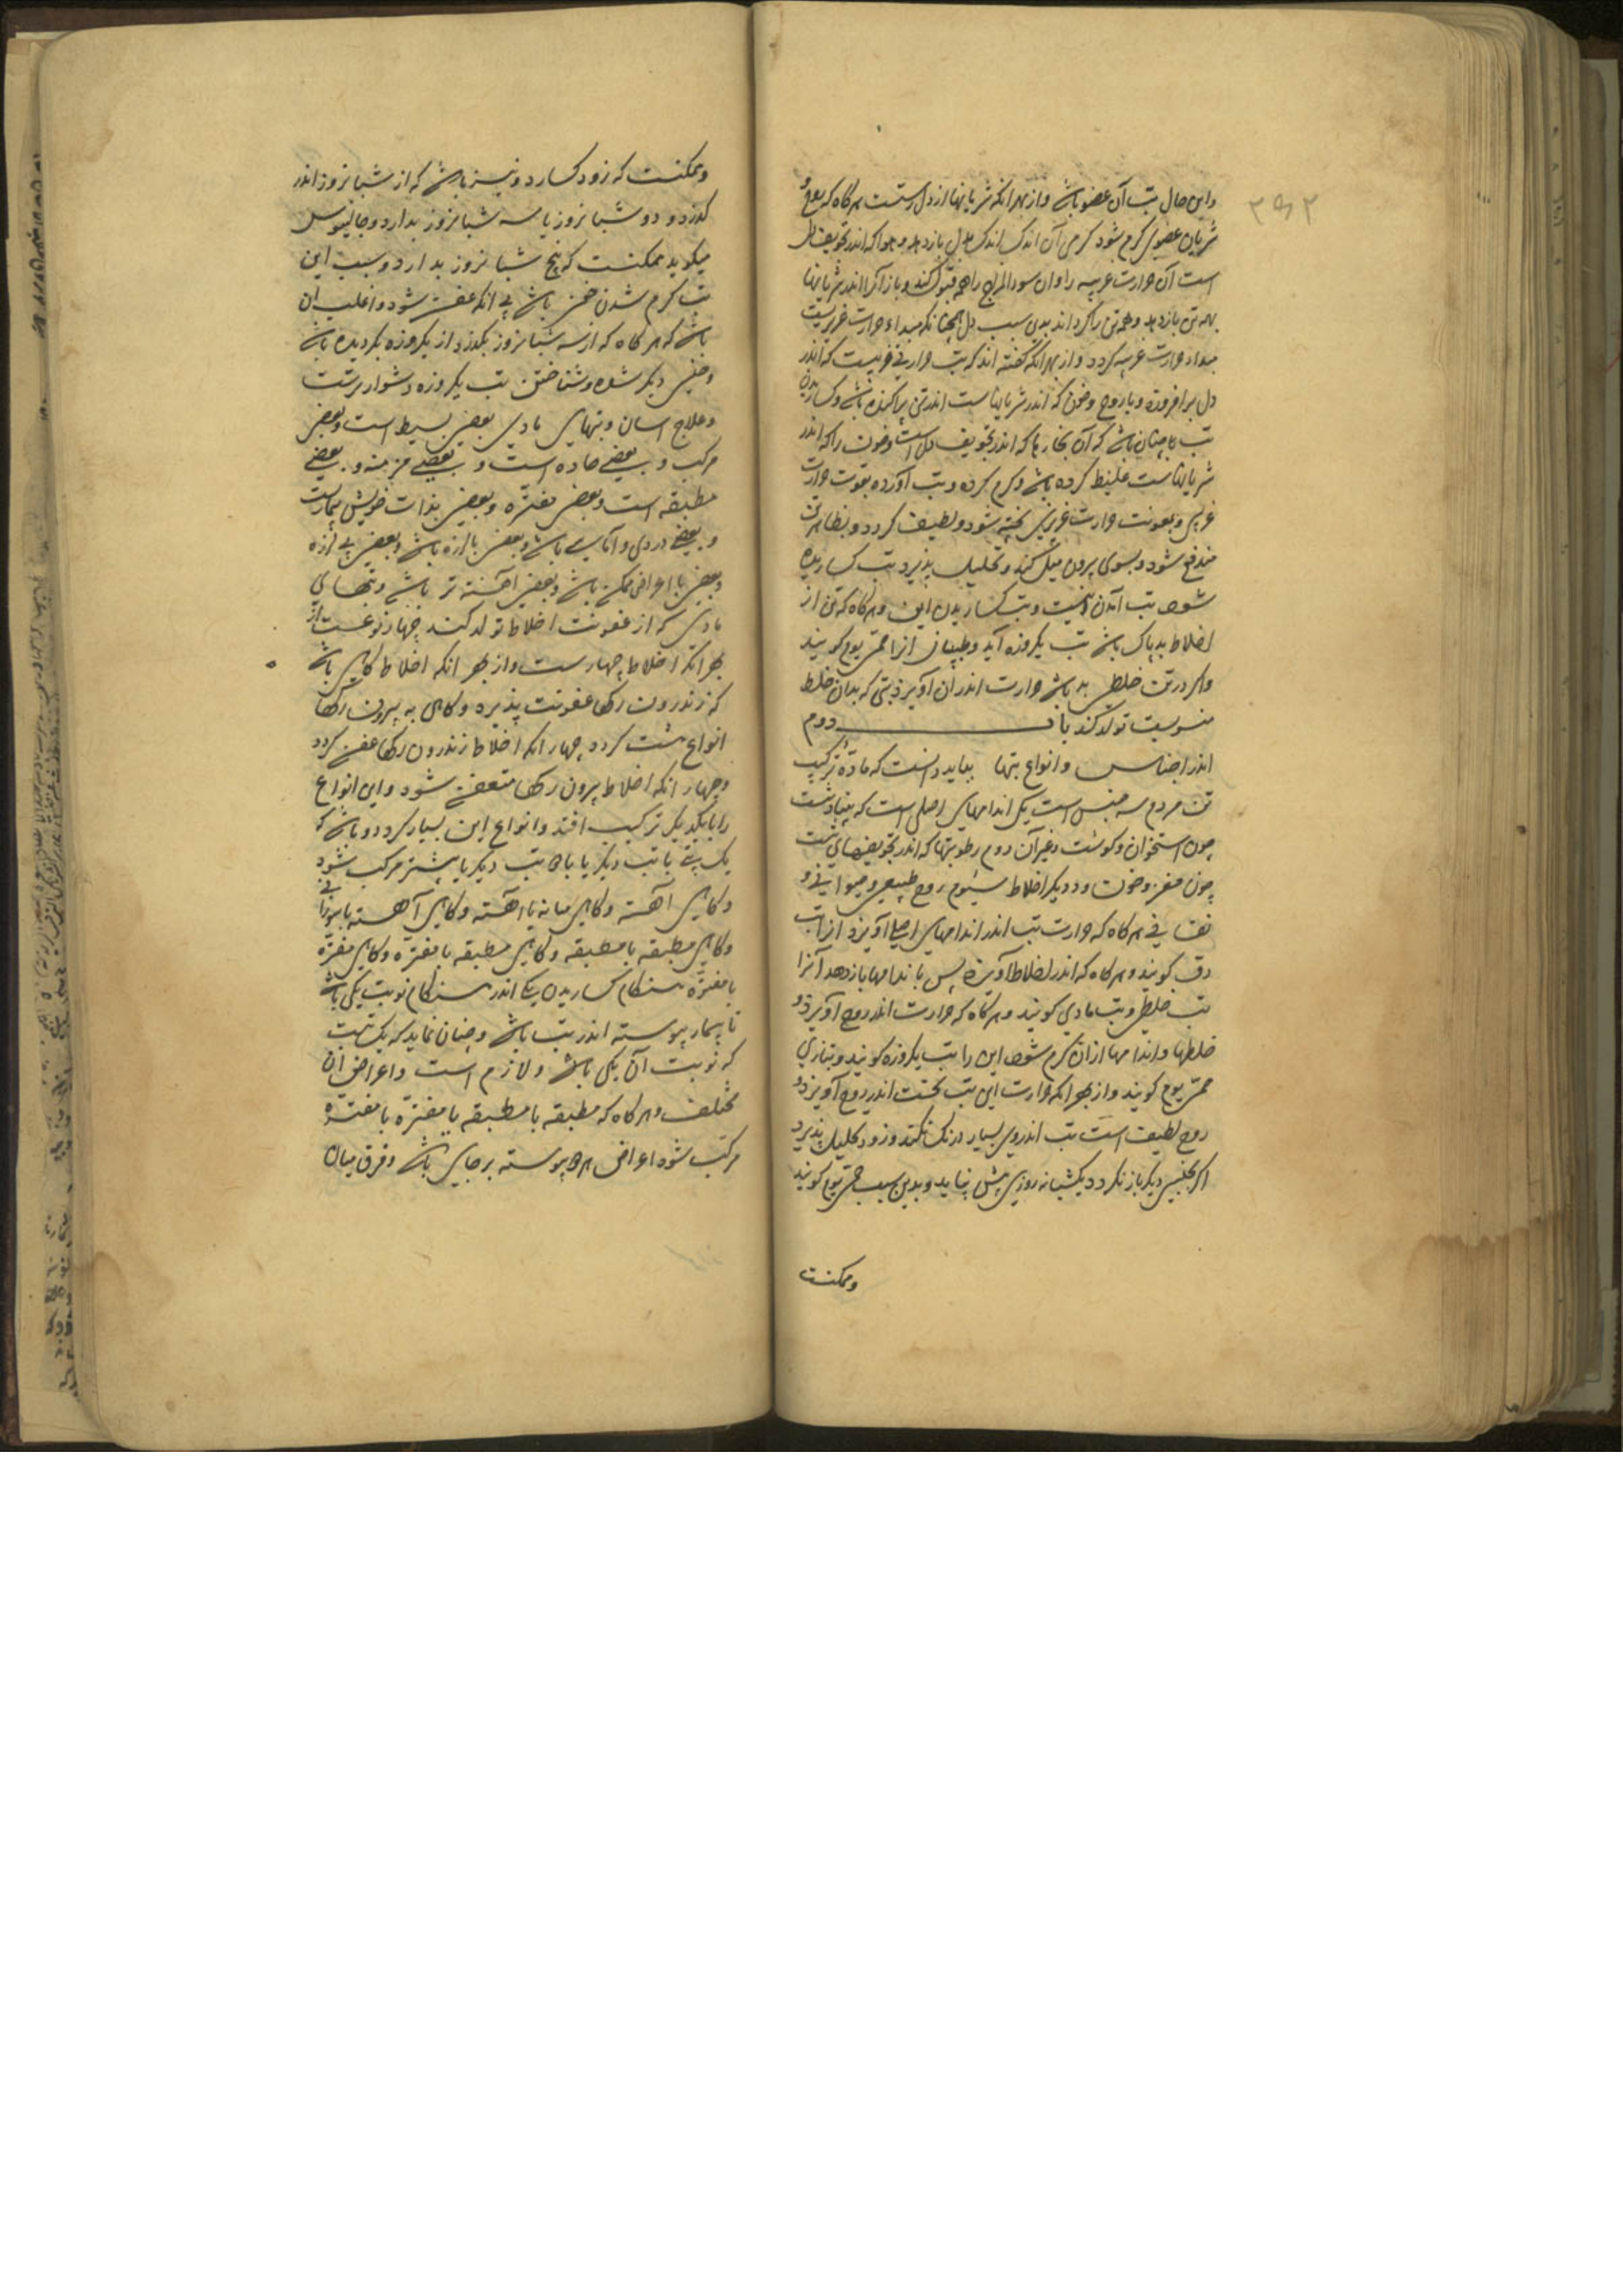 واین حال تب آن عضو باشد و از بهر انکه شریانها از دل رستست هرکاه که روح
شریان عضوی کرم شود کرمی آن اندک اندک بدل بازدهد و هوا که اندر تجویف دل
است آن حرارت غریبه را و آن سوء المزاج را همه قبول کند و باز آنرا اندر شریانها
بهمه تن بازدهد و همه تن را کرداند بدین سبب دل همچنانکه مبداء حرارت غریزیست
مبداء حرارت غریبه کردد و از بهر انکه کفته اند که تب حرارتی غریبست که اندر
دل برافروزد و با روح و خون که اندر شریانهاست اندر تن پراکنده باشد و کساریدن
تب چنان باشد که آن بخارها که اندر تجویف دل است و خون را که اندر
شریانهاست غلیظ کرده باشد و کرم کرده و تب آورده بقوت حرارت
غریبی و بمعونت حرارت غریزی پخته شود و لطیف کردد و بظاهر تن
مندفع شود و بسوی بیرون میل کند و تحلیل پذیرد تب کساریده
شود تب آمدن اینست و تب کساریدن این و هرکاه که تن از
اخلاط بد پاک باشد تب یکروزه آید و طبیبان آنرا حمی یوم کویند
واکر در تن خلطی بد باشد حرارت اندر ان آویزد تبی که بدان خلط
منسوبست تولد کند باب دوم
اندر اجناس و انواع تبها بباید دانست که مادۀ ترکیب
تن مردم سه جنس است یکی اندامهای اصلی است که بنیاد تنست
چون استخوان و کوشت و غیر آن دوم رطوبتها که اندر تجویفهای تنست
چون مغز و خون و دیکر اخلاط سیوم روح طبیعی و حیوانی و
نفسانی هرکاه که حرارت تب اندر اندامهای اصلی آویزد انرا تب
دق کویند و هرکاه که اندر اخلاط آویزد پس باندامها بازدهد آنرا
تب خلطی و تب مادی کویند و هرکاه که حرارت اندر روح آویزد و
خلطها و اندامها ازان کرم شود این را تب یکروزه کویند و بتازی
حمی یوم کویند و از بهر انکه حرارت این تب نخست اندر روح آویزد و
روح لطیف است تب اندروی بسیار درنک نکند و زود تحلیل پذیرد
اکر بجنسی دیکر باز نکردد یکشبانه روزی بیش نپاید و بدین سبب حمی یوم کویند
وممکنست
وممکنست که زود کسارد و نیز باشد که از شبانروز اندر
کذرد و دو شبانروز یا سه شبانروز بدارد و جالینوس
میکوید ممکنست که پنج شبانروز بدارد و سبب این
تب کرم شدن باشد بی انکه عفن شود و اغلب ان
باشد که هرکاه که از سه شبانروز بکذرد از یکروزه بکردیده باشد
و جنسی دیکر شده و شناختن تب یکروزه دشوارترست
و علاج اسان و تبهای مادی بعضی بسیط است و بعضی
مرکب و بعضی حاده است و بعضی مزمنه و بعضی
مطبقه است و بعضی مفتره و بعضی بذات خویش بیماریست
و بعضی دردی و آماسی باشد و بعضی با لرزه باشد و بعضی بی لرزه
و بعضی با اعراض ممکن باشد و بعضی آهسته تر باشد و تبهای
مادی که از عفونت اخلاط تولد کند چهار نوعست از
بهر انکه اخلاط چهارست و از بهر انکه اخلاط کاهی باشد
که اندرون رکها عفونت پذیرد و کاهی به بیرون رکها
انواع هشت کردد چهار انکه اخلاط اندرون رکها عفن کردد
و چهار انکه اخلاط بیرون رکها متعفن شود و این انواع
را با یکدیکر ترکیب افتد و انواع این بسیار کردد و باشد که
یک تب با تب دیکر یا با دو تب دیکر یا بیشتر مرکب شود
و کاهی آهسته و کاهی میانه با آهسته و کاهی آهسته با سوزانی
و کاهی مطبقه با مطبقه و کاهی مطبقه با مفتره و کاهی مفتره
با مفتره هنکام کساریدن یکی اندر هنکام نوبت یکی باشد
تا بیمار پیوسته اندر تب باشد و چنان نماید که یک تبست
که نوبت آن یکی باشد و لازم است و اعراض ان
مختلف و هرکاه که مطبقه با مطبقه یا مفتره با مفتره
مرکب شود اعراض هر دو پیوسته برجای باشد و فرق میان